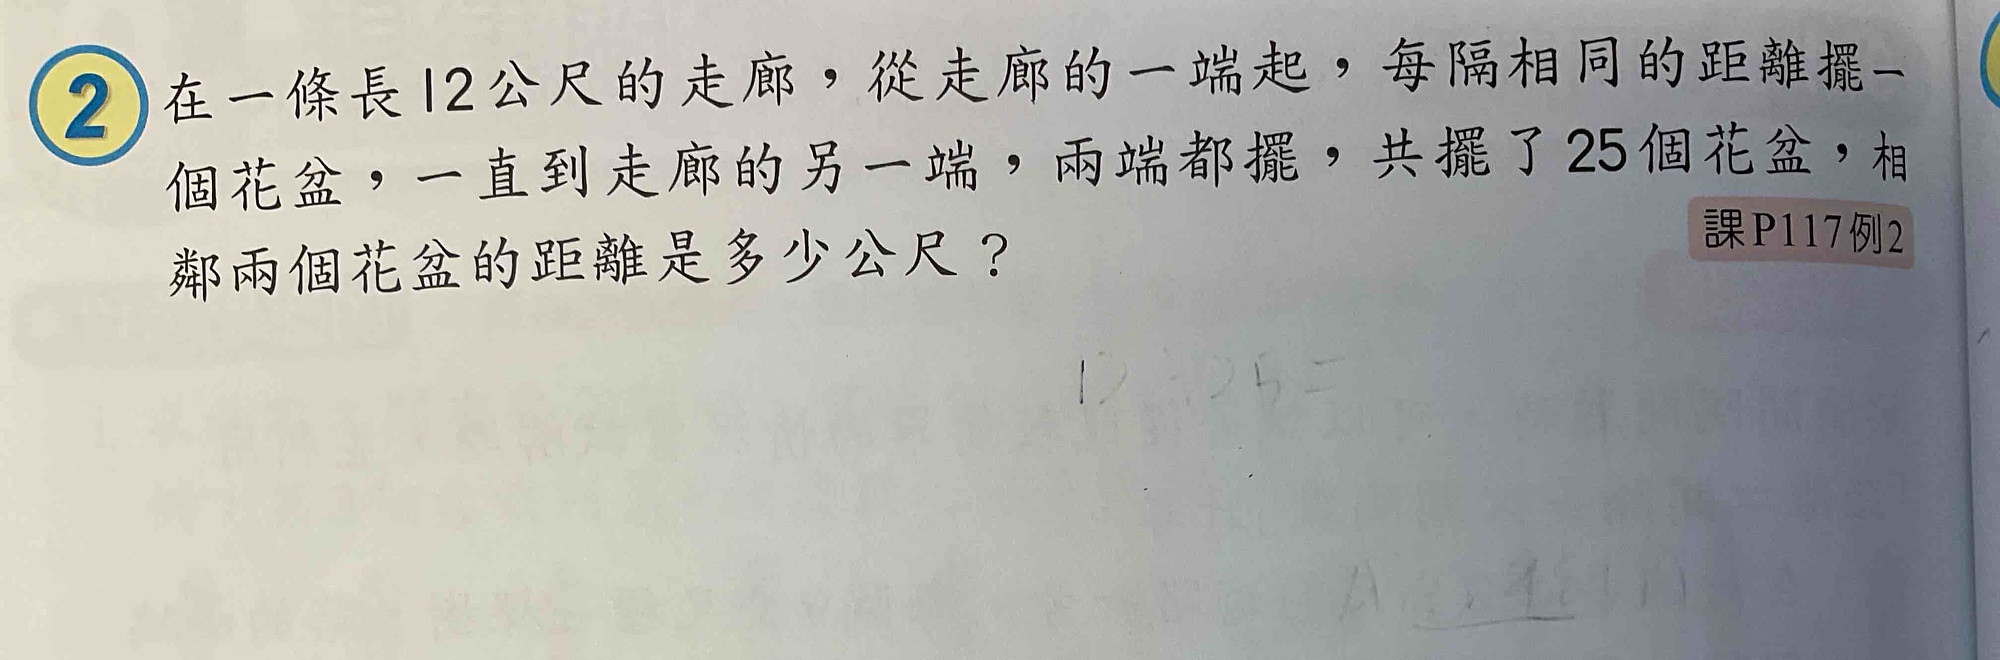 2 在一條長12公尺的走廊，從走廊的一端起，每隔相同的距離擺一
個花盆，一直到走廊的另一端，兩端都擺，共擺了25個花盆，相
鄰兩個花盆的距離是多少公尺？
課P117例2
12÷25=